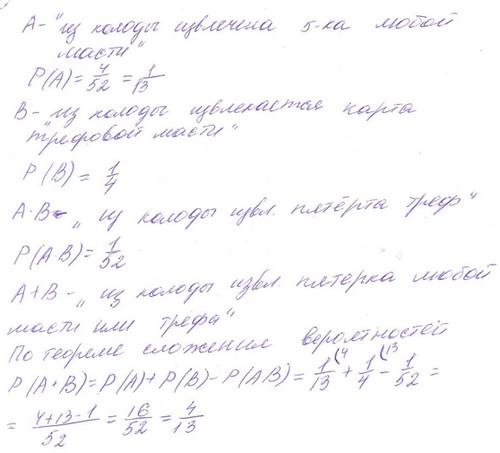 А- "из колоды извлечена 5-ка любой
масти"
P(A) = 4/52 = 1/13
В- "из колоды извлекается карта
трефовой масти"
P(B) = 1/4
A·B - "из колоды извл. пятёрка треф"
P(A·B) = 1/52
A+B - "из колоды извл. пятерка любой
масти или трефа"
По теореме сложения вероятностей
P(A+B) = P(A) + P(B) - P(AB) = 1/13 (4 + 1/4 (13 - 1/52 =
= (4+13-1)/52 = 16/52 = 4/13